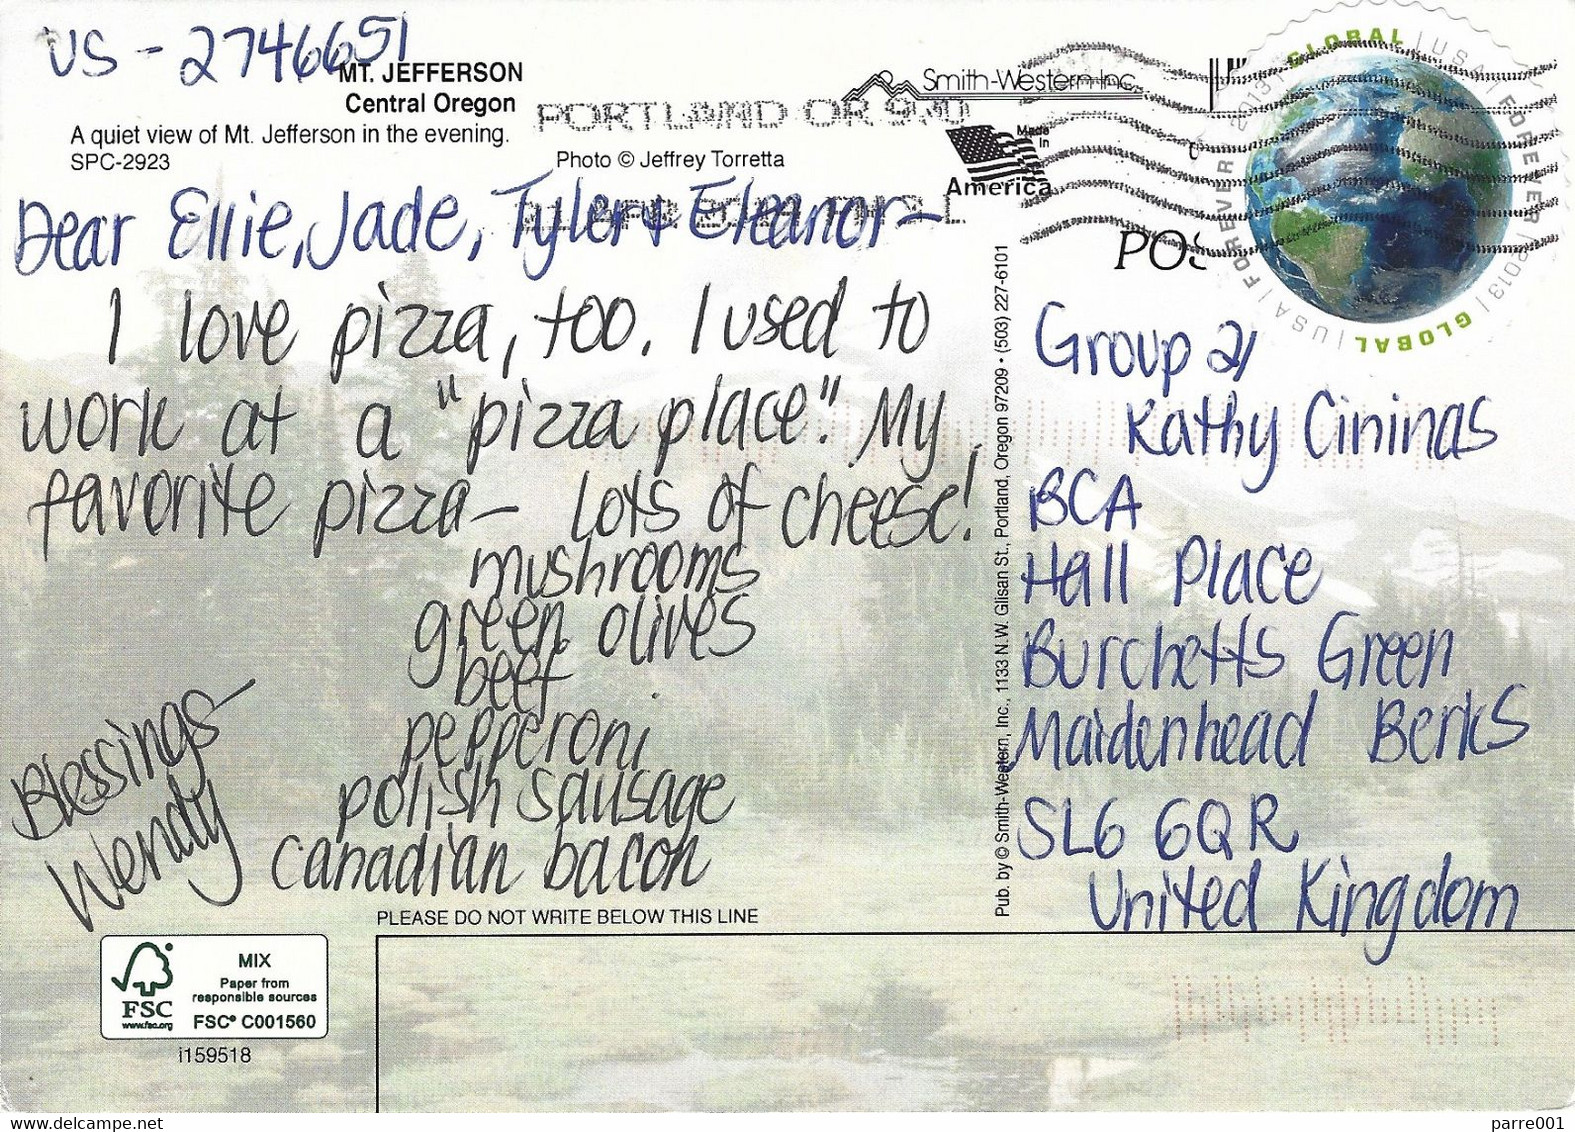 US - 2746651
MT. JEFFERSON
Central Oregon
A quiet view of Mt. Jefferson in the evening.
SPC-2923
Photo © Jeffrey Torretta
Smith-Western Inc.
Made
in
America
PORTLAND OR
GLOBAL | USA | FOREVER | 2013 | GLOBAL | USA | FOREVER | 2013
POS
Dear Ellie, Jade, Tyler & Eleanor -
I love pizza, too. I used to
work at a "pizza place". My
favorite pizza - lots of cheese!
mushrooms
green olives
beef
pepperoni
polish sausage
canadian bacon
Blessings -
Wendy
Pub. by © Smith-Western, Inc., 1133 N.W. Glisan St., Portland, Oregon 97209 • (503) 227-6101
Group 21
Kathy Cininas
BCA
Hall Place
Burchetts Green
Maidenhead Berks
SL6 6QR
United Kingdom
PLEASE DO NOT WRITE BELOW THIS LINE
FSC
www.fsc.org
MIX
Paper from
responsible sources
FSC® C001560
i159518
www.delcampe.net
parre001